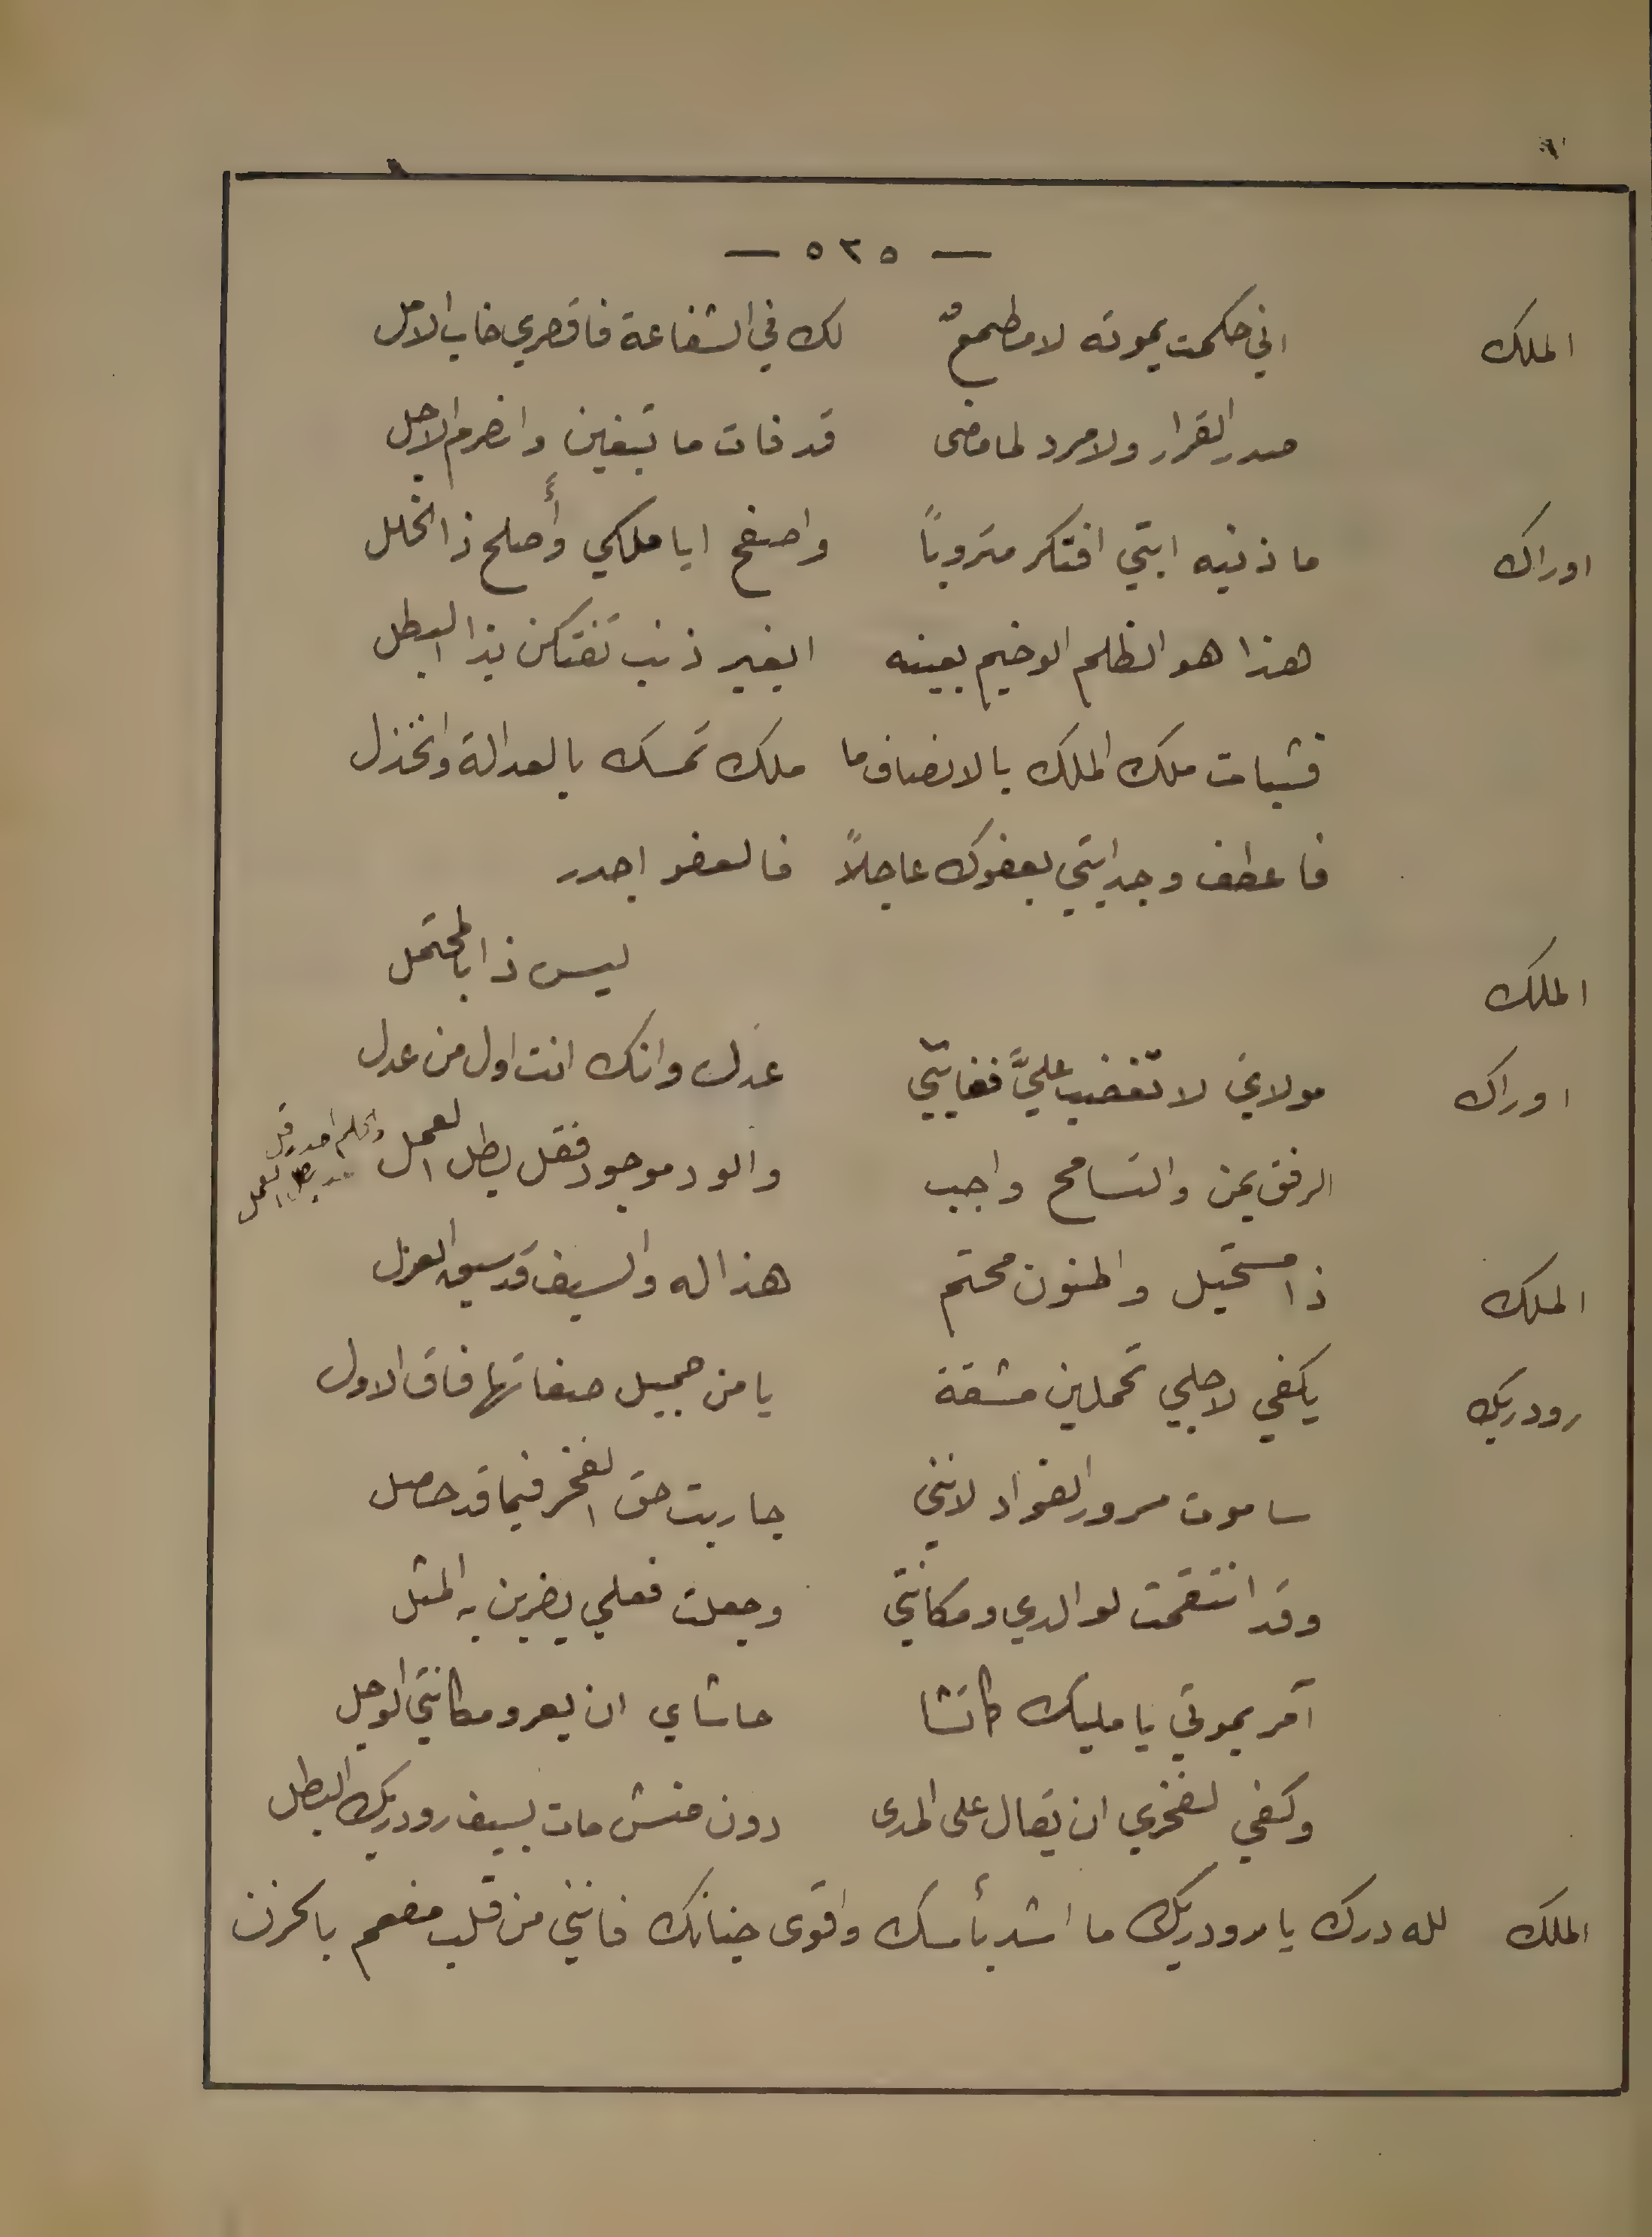 — ٥٢٥ —
الملك اني حكمت بموته لا مطمعٌ لك في الشفاعة فاقصري خاب الامل
صدر القرار ولا مرد لما مضى قد فات ما تبغين وانصرم الاجل
اوراك ما ذنبه ابتي افتكر متروياً واصفح ايا ملكي وأصلح ذا الخلل
هذا هو الظلم الوخيم بعينه ابغير ذنب تفتكن بذا البطل
فثبات ملك الملك بالانصاف ما ملك تمسك بالعدالة وانخذل
فاعطف وجد ابتي بعفوك عاجلاً فالعفو اجدر
الملك ليس ذا بالمحتمل
اوراك مولاي لا تغضب عليَّ فغايتي عدل وانك انت اول من عدل
الرفق يمن والتسامح واجب والود موجود فقل بطل العمل
والحلم اجدر قل بطل العمل
الملك ذا مستحيل والمنون محتم هذا له والسيف قد سبق العزل
رودريك يكفي لاجلي تحملين مشقة يا من جميل صفاتها فاق الاول
ساموت مسرور الفواد لانني جاريت حق الفخر فيما قد حصل
وقد انتقمت لوالدي ومكانتي وجعلت فعلي يضربن به المثل
آمر بموتي يا مليك كما تشا حاشاي ان يعرو مكانتي الوجل
وكفي لفخري ان يقال على المدى دون منش مات بسيف رودريك البطل
الملك لله درك يا رودريك ما اشد بأسك واقوى جنانك فانني من قلب مفعم بالحزن